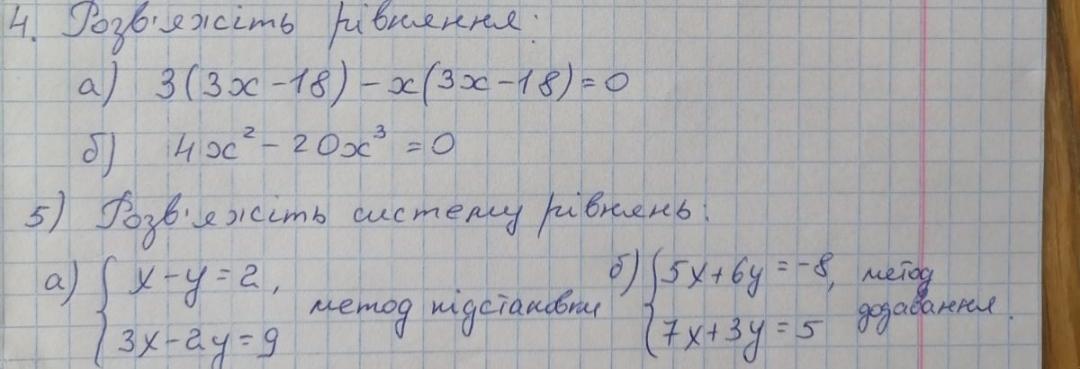 4. Розв'яжіть рівняння:
а) 3(3x-18)-x(3x-18)=0
б) 4x²-20x³=0
5) Розв'яжіть систему рівнянь:
а) { x-y=2, 3x-2y=9 метод підстановки
б) { 5x+6y=-8, 7x+3y=5 метод додавання.